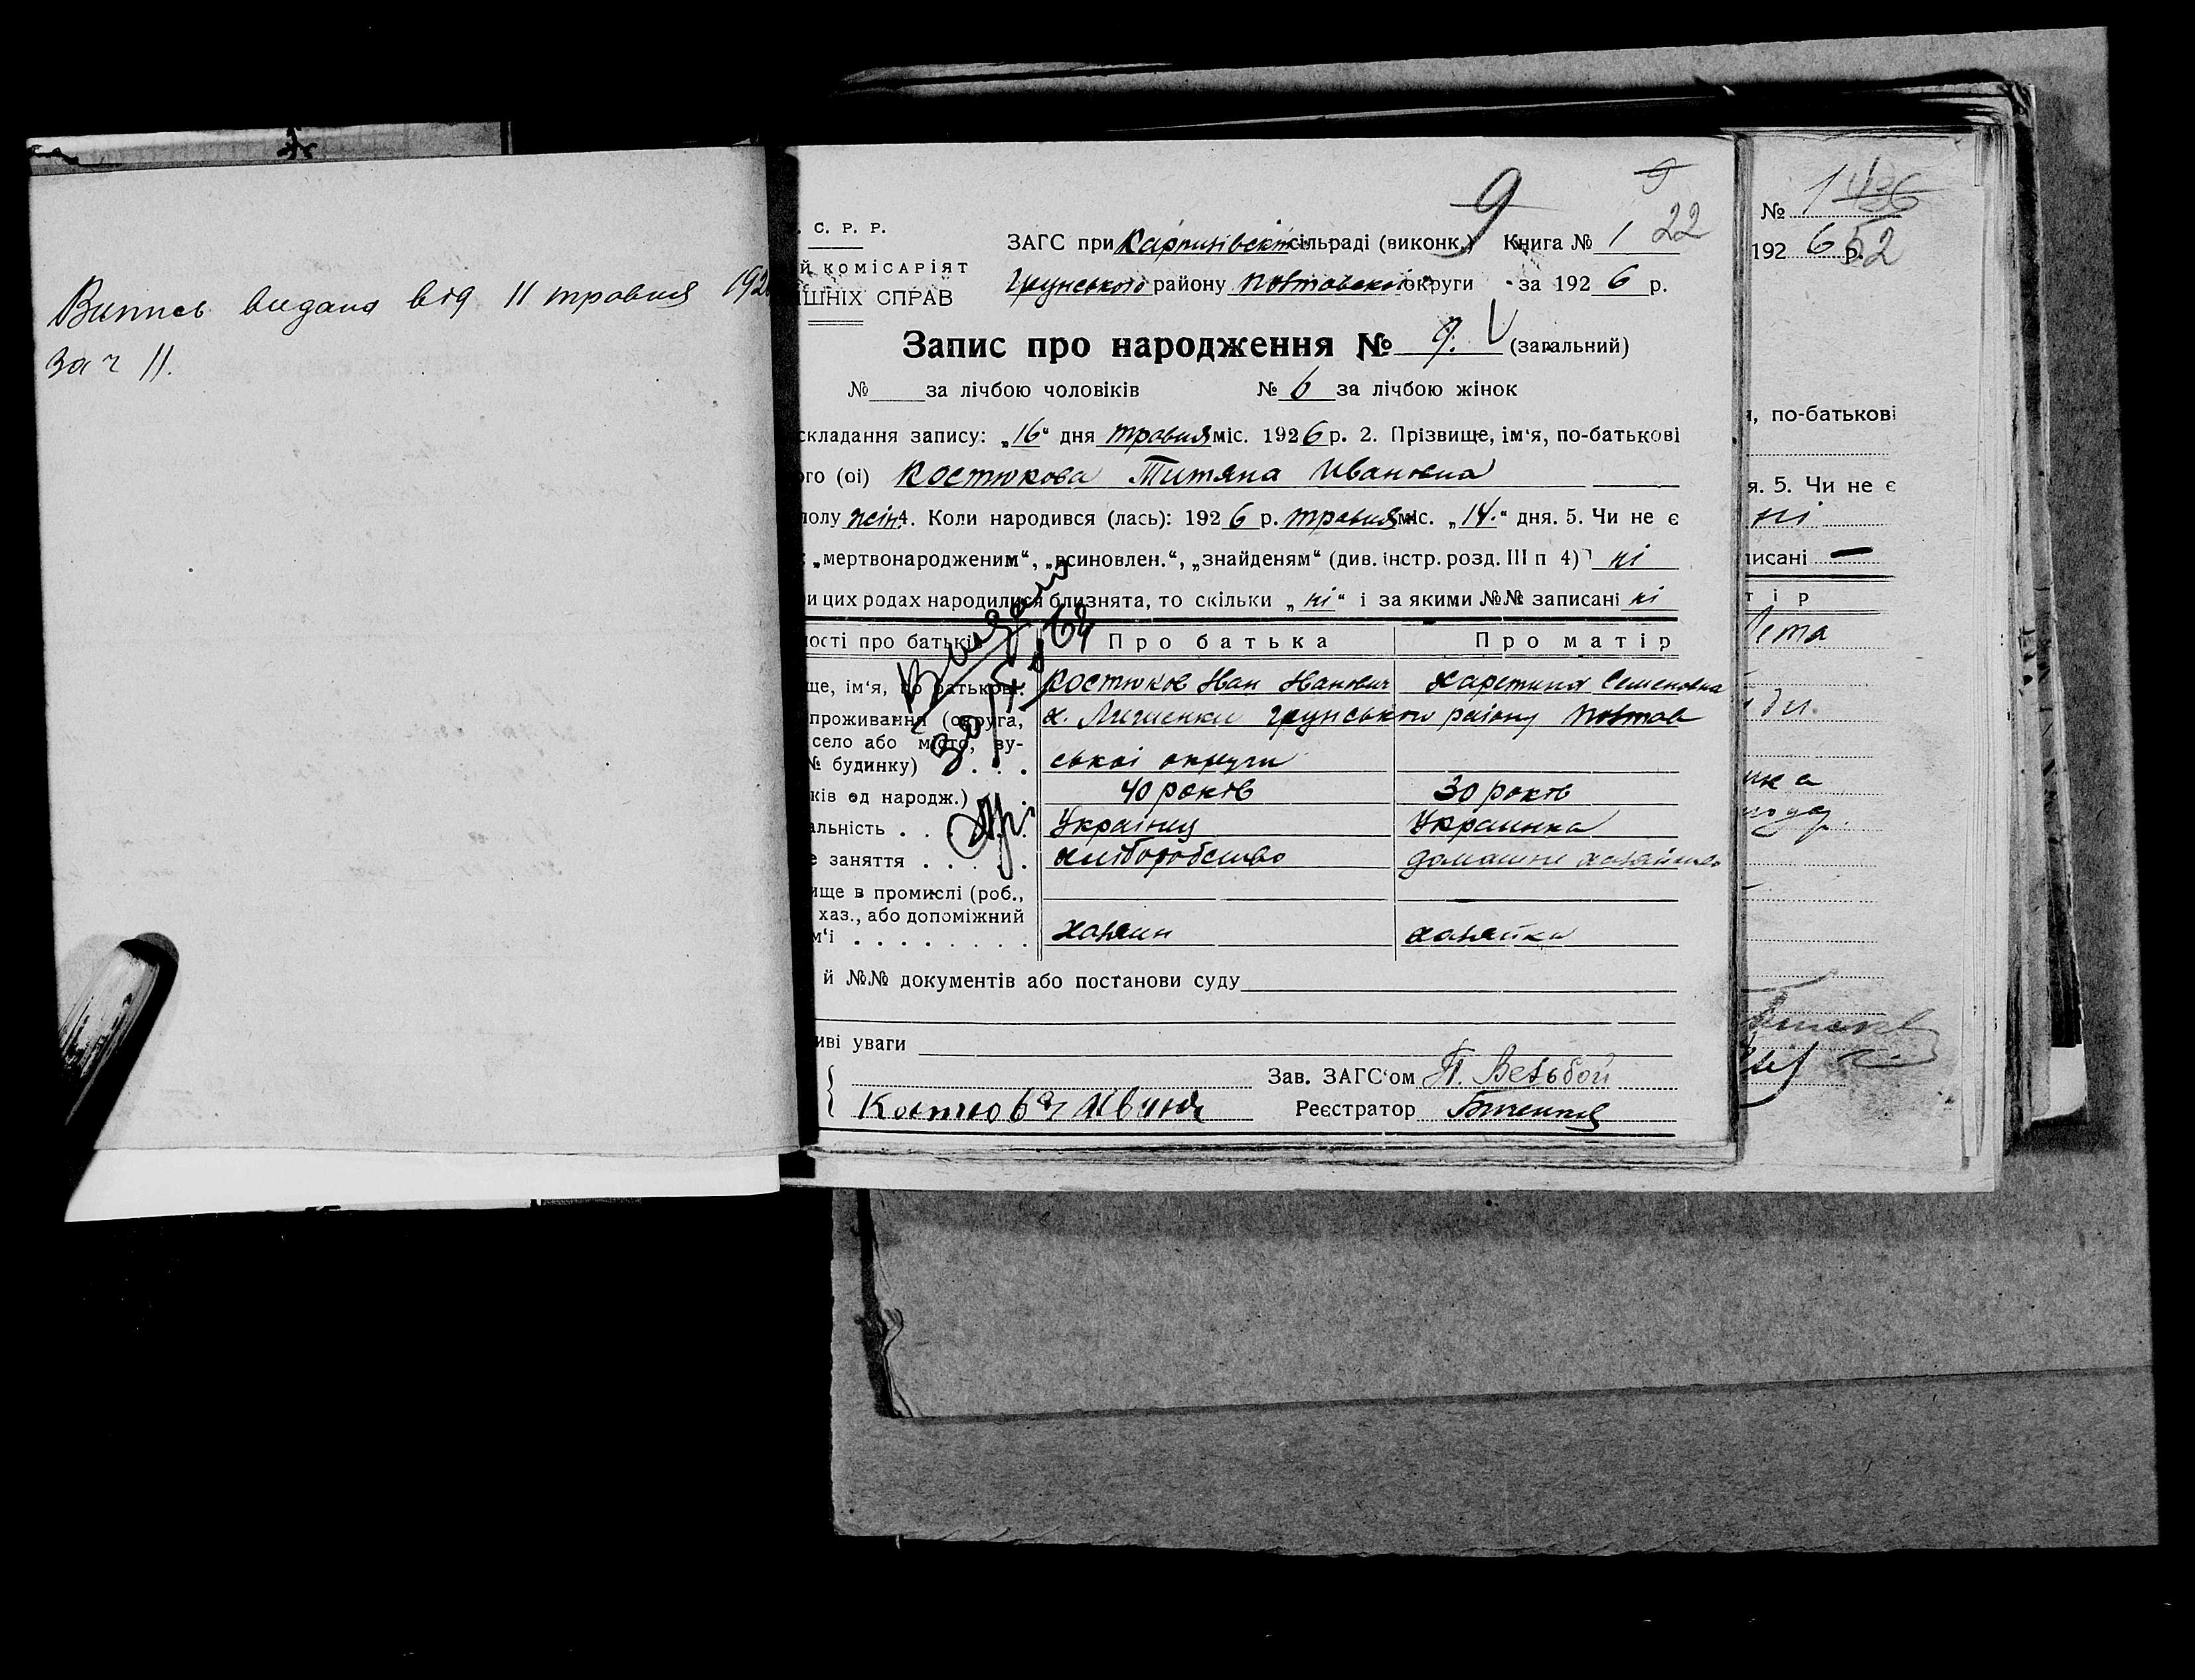 Випись видана від 11 травня 192
за ч 11.
9
9
22
. С. Р. Р.
ЗАГС при Карпилівскі сільраді (виконк.) Книга № 1
й КОМІСАРІЯТ
ШНІХ СПРАВ
Грунського району Полтавскої округи за 1926 р.
Запис про народження № 9. (загальний)
№ за лічбою чоловіків № 6 за лічбою жінок
складання запису: „16“ дня травня міс. 1926 р. 2. Прізвище, ім‘я, по-батькові
ого (ої) Костюкова Титяна Ивановна
полу жін. 4. Коли народився (лась): 1926 р. травня міс. „14.“ дня. 5. Чи не є
„мертвонародженим“, „всиновлен.“, „знайденям“ (див. інстр. розд. III п 4)? ні
и цих родах народилися близнята, то скільки „ні“ і за якими №№ записані ні
ості про батьків Про батька Про матір
ще, ім‘я, по батькові. Костюков Иван Иванович Харетина Семеновна
проживання (округа, х. Грунськои району Полтав
село або місто, ву-
№ будинку) . . . ської округи
ків од народж.) . 40 років 30 років
альність . . Українец Украинка
е заняття . . . . хліборобство домашне хазяйство
ище в промислі (роб.,
хаз., або допоміжний
м‘ї . . . . . . . . хазяин хазяйка
й №№ документів або постанови суду
иві уваги
Зав. ЗАГС‘ом П.
Реєстратор
Видано
30/
64
№ 1
1926 р.
52
, по-батькові
я. 5. Чи не є
ні
писані —
т і р